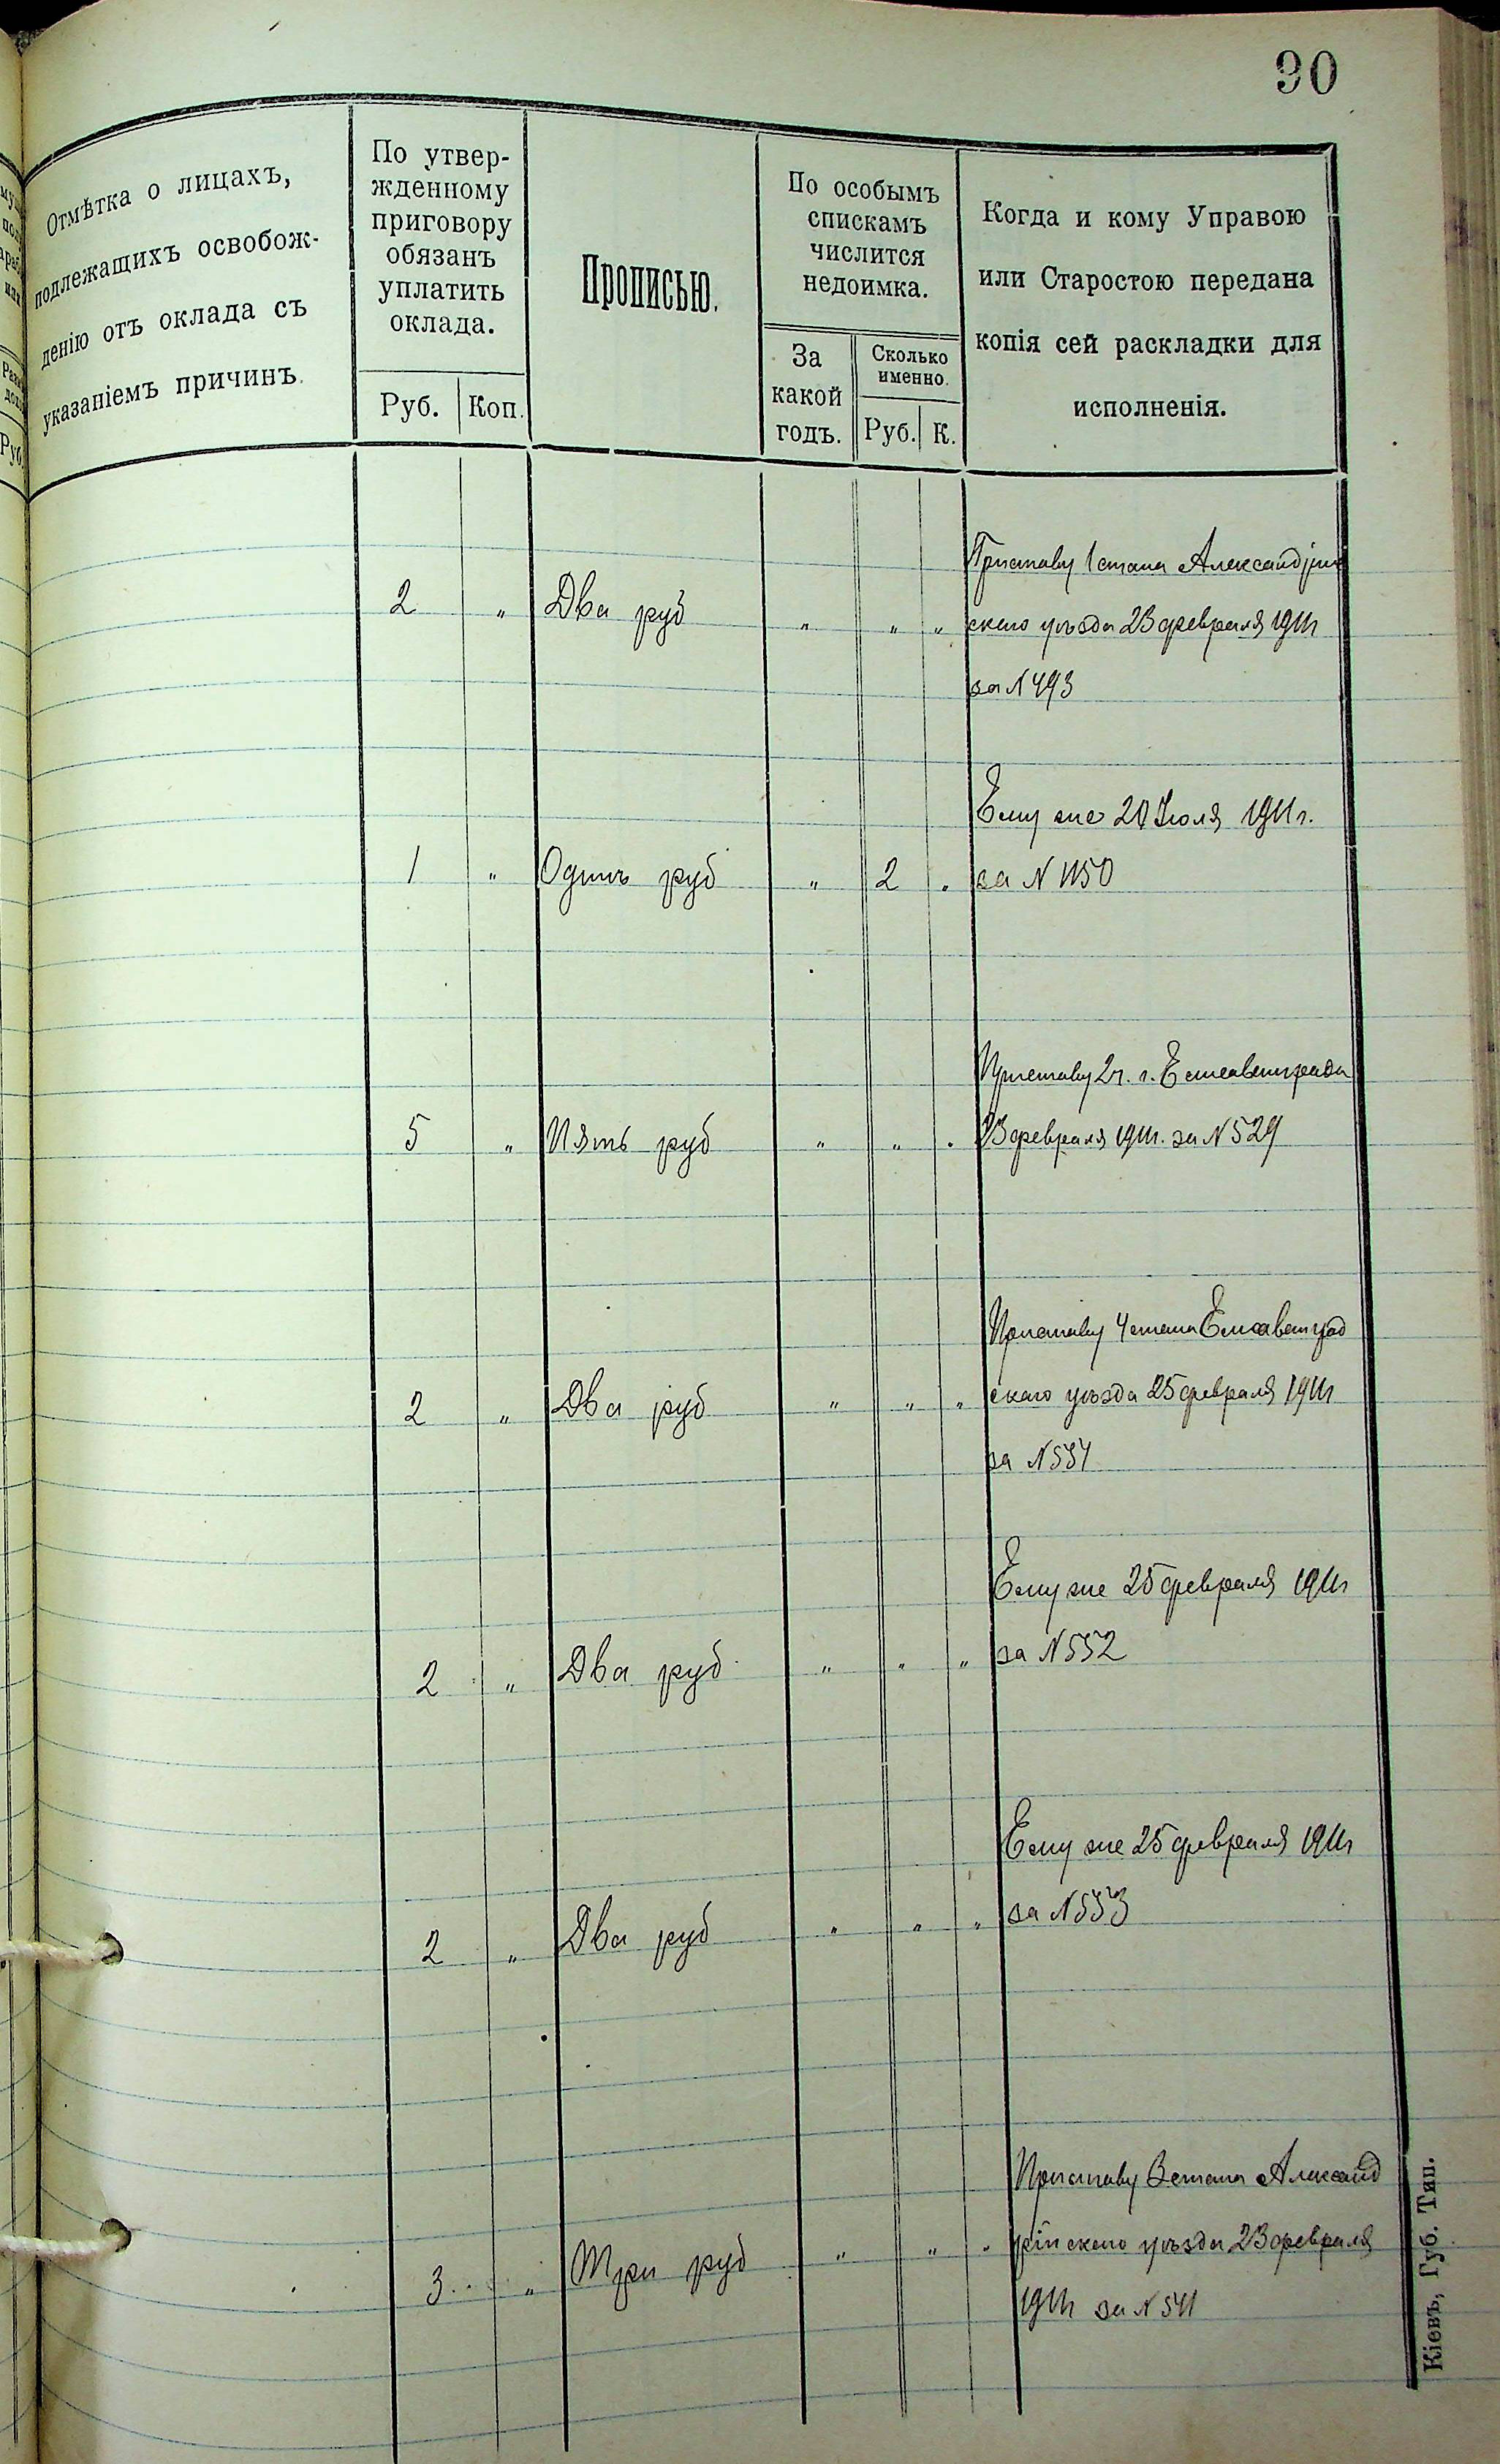 90
Отмѣтка о лицахъ,
подлежащихъ освобож-
денію отъ оклада съ
указаніемъ причинъ.
По утвер-
жденному
приговору
обязанъ
уплатить
оклада.
Руб. Коп.
Прописью.
По особымъ
спискамъ
числится
недоимка.
За
какой
годъ.
Сколько
именно.
Руб. К.
Когда и кому Управою
или Старостою передана
копія сей раскладки для
исполненія.
Приставу 1 стана Александрій
2 " Два руб " " " скаго уѣзда 23 февраля 1911г
за N 493
Ему же 20 Іюля 1911 г.
1 " Одинъ руб " 2 " за N 1150
Приставу 2 ч. г. Елисаветграда
5 " Пять руб " " " 23 февраля 1911г. за N 529
Приставу 4 стана Елисаветград
2 " Два руб " " " скаго уѣзда 25 февраля 1911г
за N 551
Ему же 25 февраля 1911г
2 " Два руб " " " за N 552
Ему же 25 февраля 1911г
2 " Два руб " " " за N 553
Приставу 3 стана Александ
3 " Три руб " " " рійскаго уѣзда 23 февраля
1911г за N 541
Кіевъ, Губ. Тип.